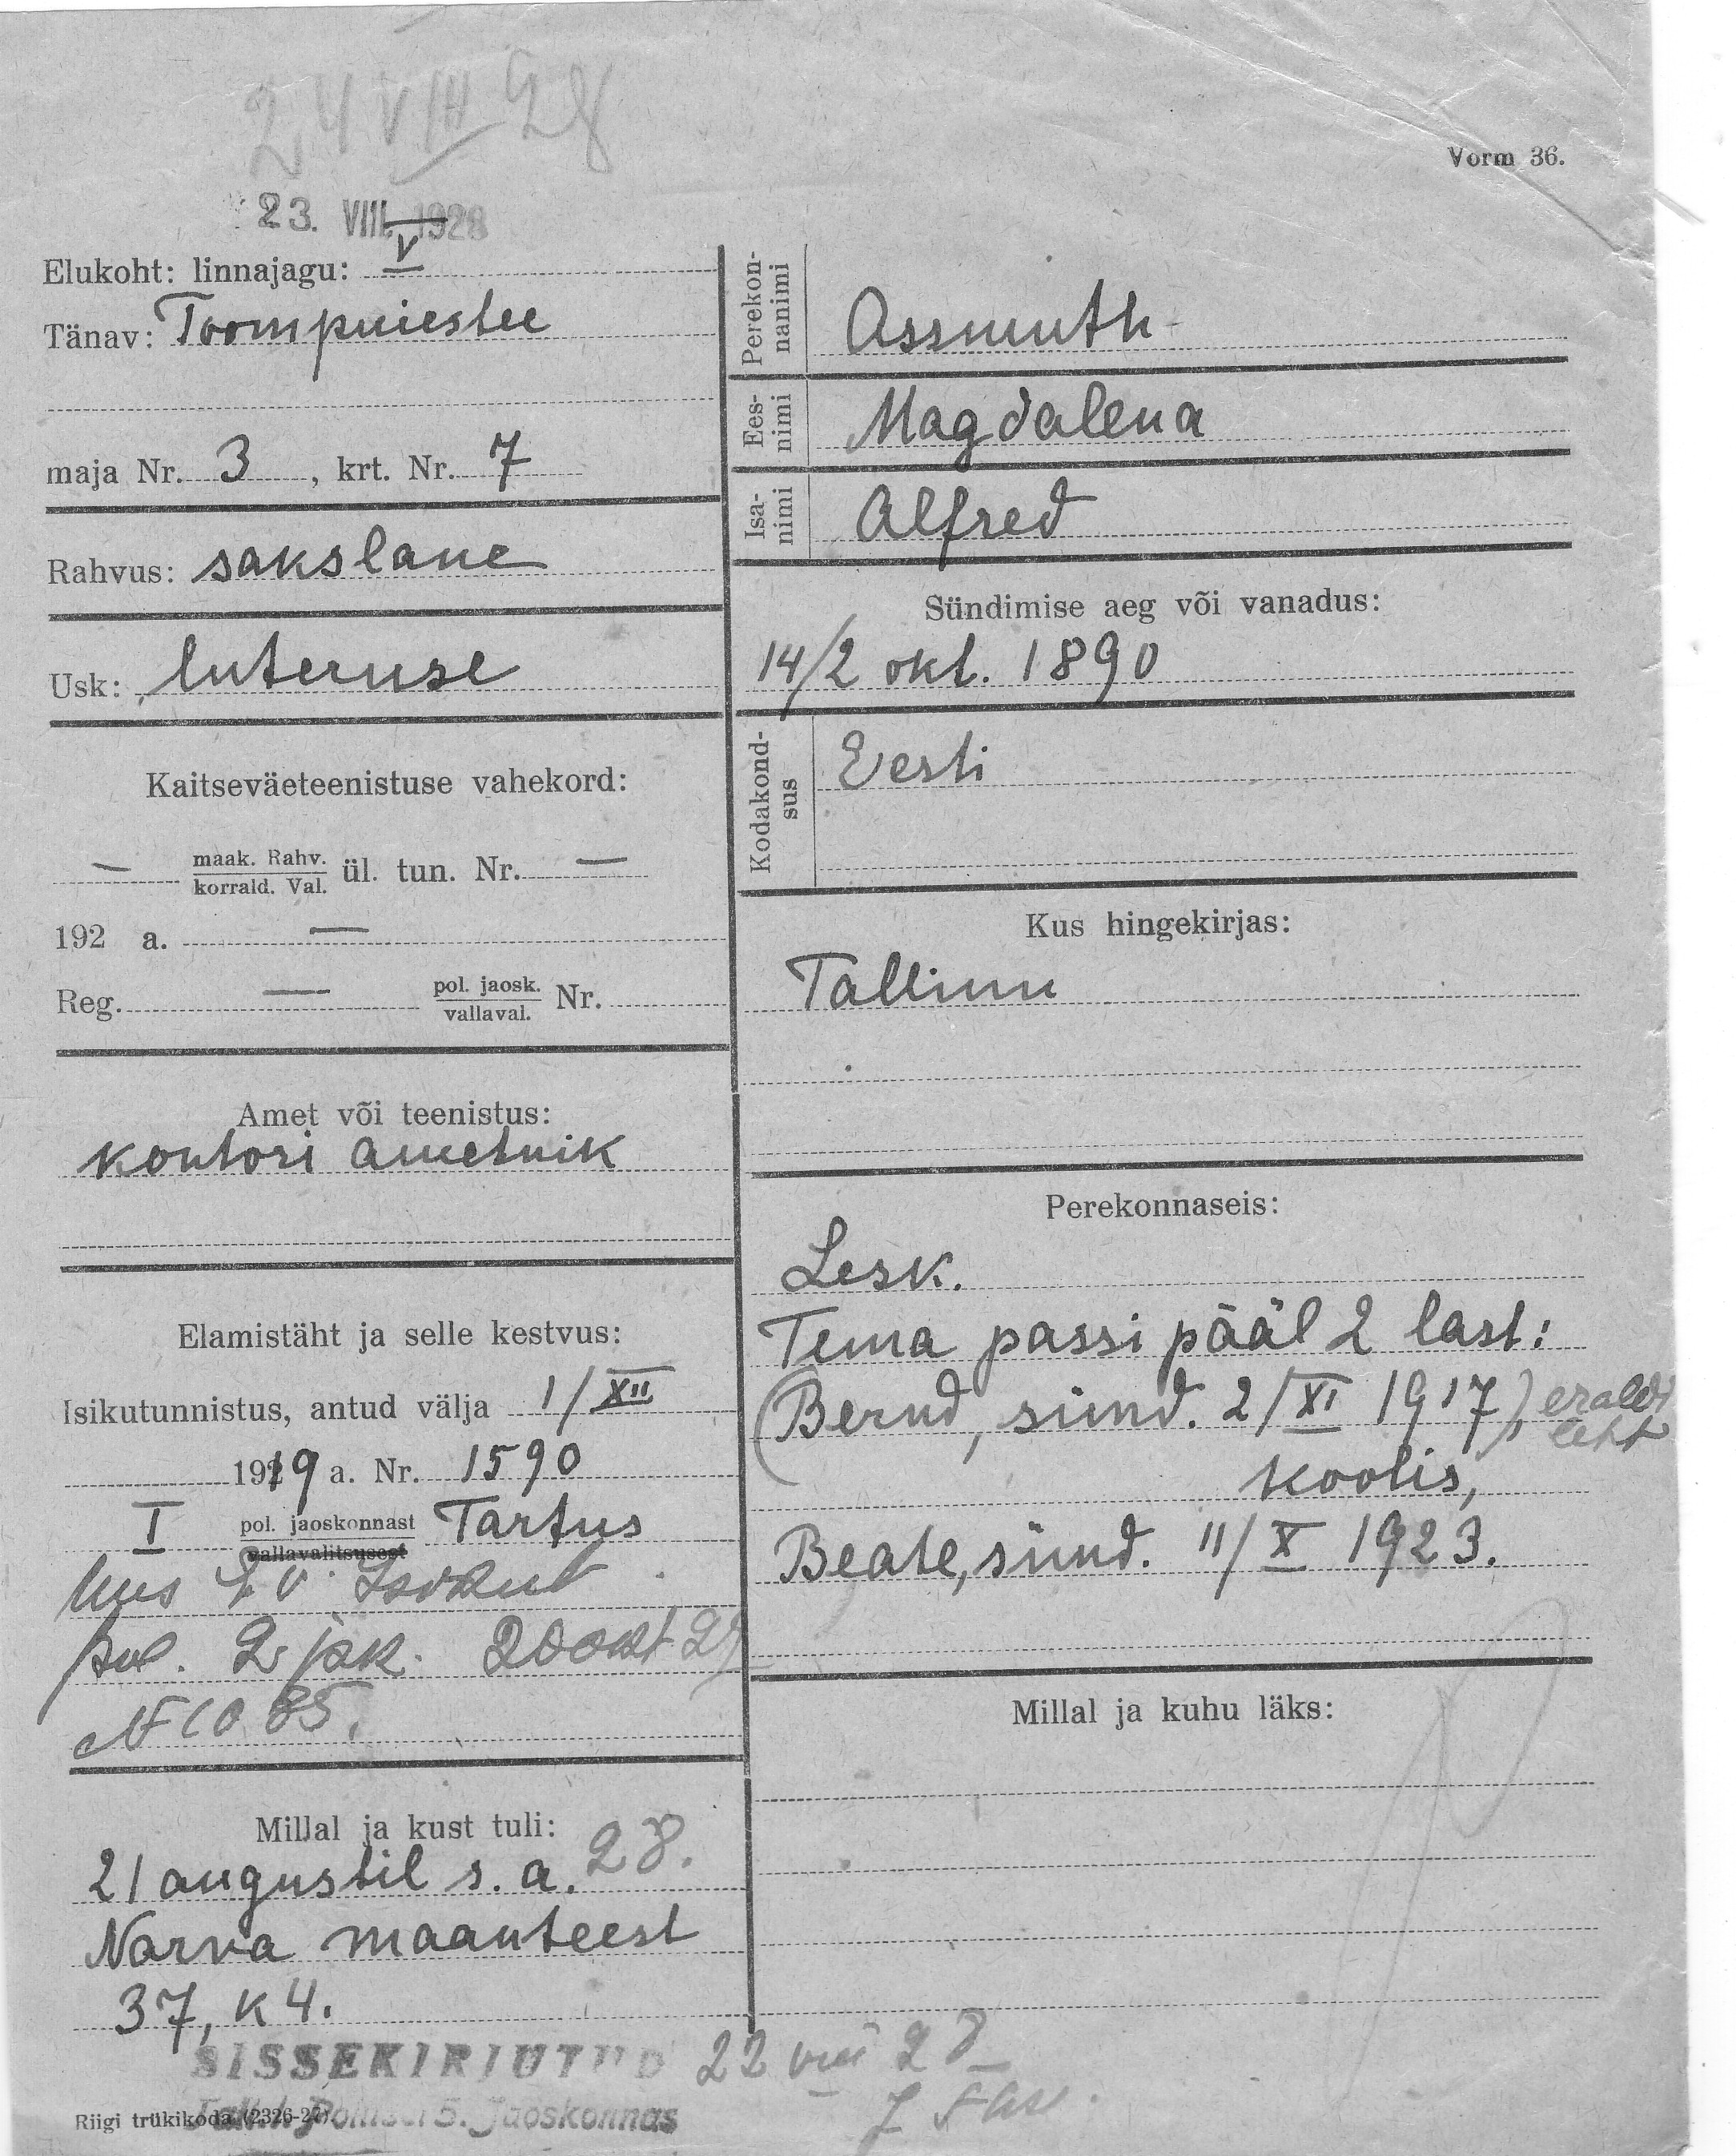 24 VIII 28
Vorm 36.
23. VIII 1928
Elukoht: linnajagu: V
Tänav: Toompuiestee
maja Nr. 3, krt. Nr. 7
Rahvus: sakslane
Usk: luteruse
Kaitseväeteenistuse vahekord:
— maak. Rahv.
korrald. Val. ül. tun. Nr. —
192 a. —
Reg. — pol. jaosk.
vallaval. Nr.
Amet või teenistus:
kontori ametnik
Elamistäht ja selle kestvus:
Isikutunnistus, antud välja 1/XII
1919 a. Nr. 1590
I pol. jaoskonnast Tartus
vallavalitsusest
uus
pol. 2 jsk. 20 okt 27
N 1085.
Millal ja kust tuli:
21 augustil s. a. 28.
Narva maanteest
37, k 4.
Perekonnanimi Assmuth
Eesnimi Magdalena
Isanimi Alfred
Sündimise aeg või vanadus:
14/2 okt. 1890
Kodakondsus Eesti
Kus hingekirjas:
Tallinn
Perekonnaseis:
Lesk.
Tema passi pääl 2 last:
(Bernd, sünd. 2/XI 1917), eraldi
leht
koolis,
Beate, sünd. 11/X 1923.
Millal ja kuhu läks:
SISSEKIRJUTUD 22 VIII 28
Riigi trükikoda (2326-27).
Tall. Politsei 5. Jaoskonnas